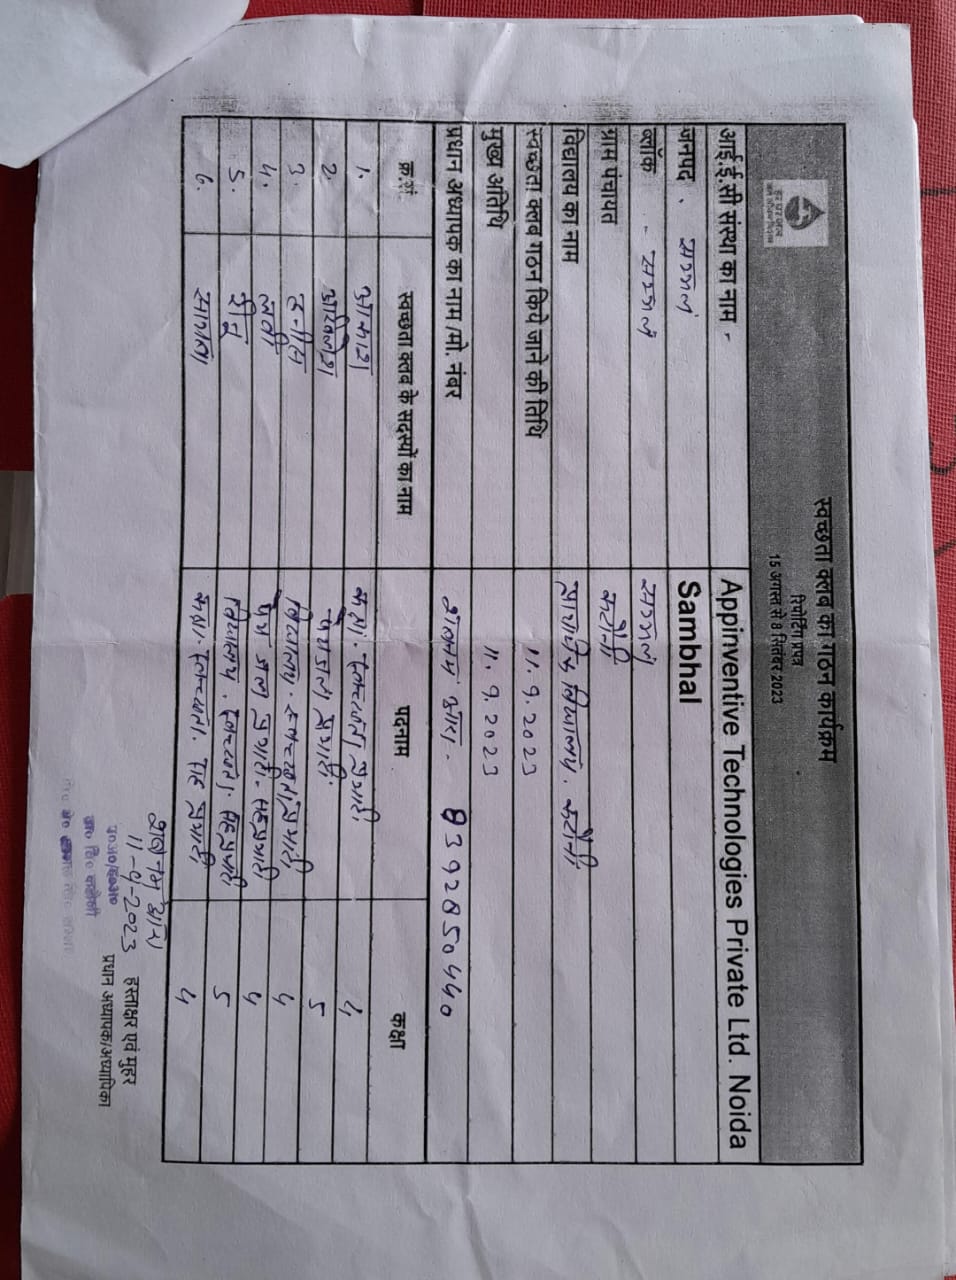 स्वच्छता क्लब का गठन कार्यक्रम
रिपोर्टिंग प्रपत्र
15 अगस्त से 8 सितंबर 2023
आई.ई.सी संस्था का नाम - Appinventive Technologies Private Ltd. Noida
जनपद . सम्भल Sambhal
ब्लॉक - सम्भल सम्भल
ग्राम पंचायत
विद्यालय का नाम
स्वच्छता क्लब गठन किये जाने की तिथि 11.9.2023
मुख्य अतिथि 11.9.2023
प्रधान अध्यापक का नाम /मो. नंबर 8392850440
क्र.सं स्वच्छता क्लब के सदस्यों का नाम पदनाम कक्षा
1. कक्षा. स्वच्छता प्रभारी 4
2. अखिलेश पेयजल प्रभारी. 5
3. विद्यालय. स्वच्छता प्रभारी 4
4. पेय जल प्रभारी. सहप्रभारी 4
5. विद्यालय. स्वच्छता. सहप्रभारी 5
6. कक्षा. स्वच्छता. सह प्रभारी 4
11-9-2023 हस्ताक्षर एवं मुहर
प्रधान अध्यापक/अध्यापिका